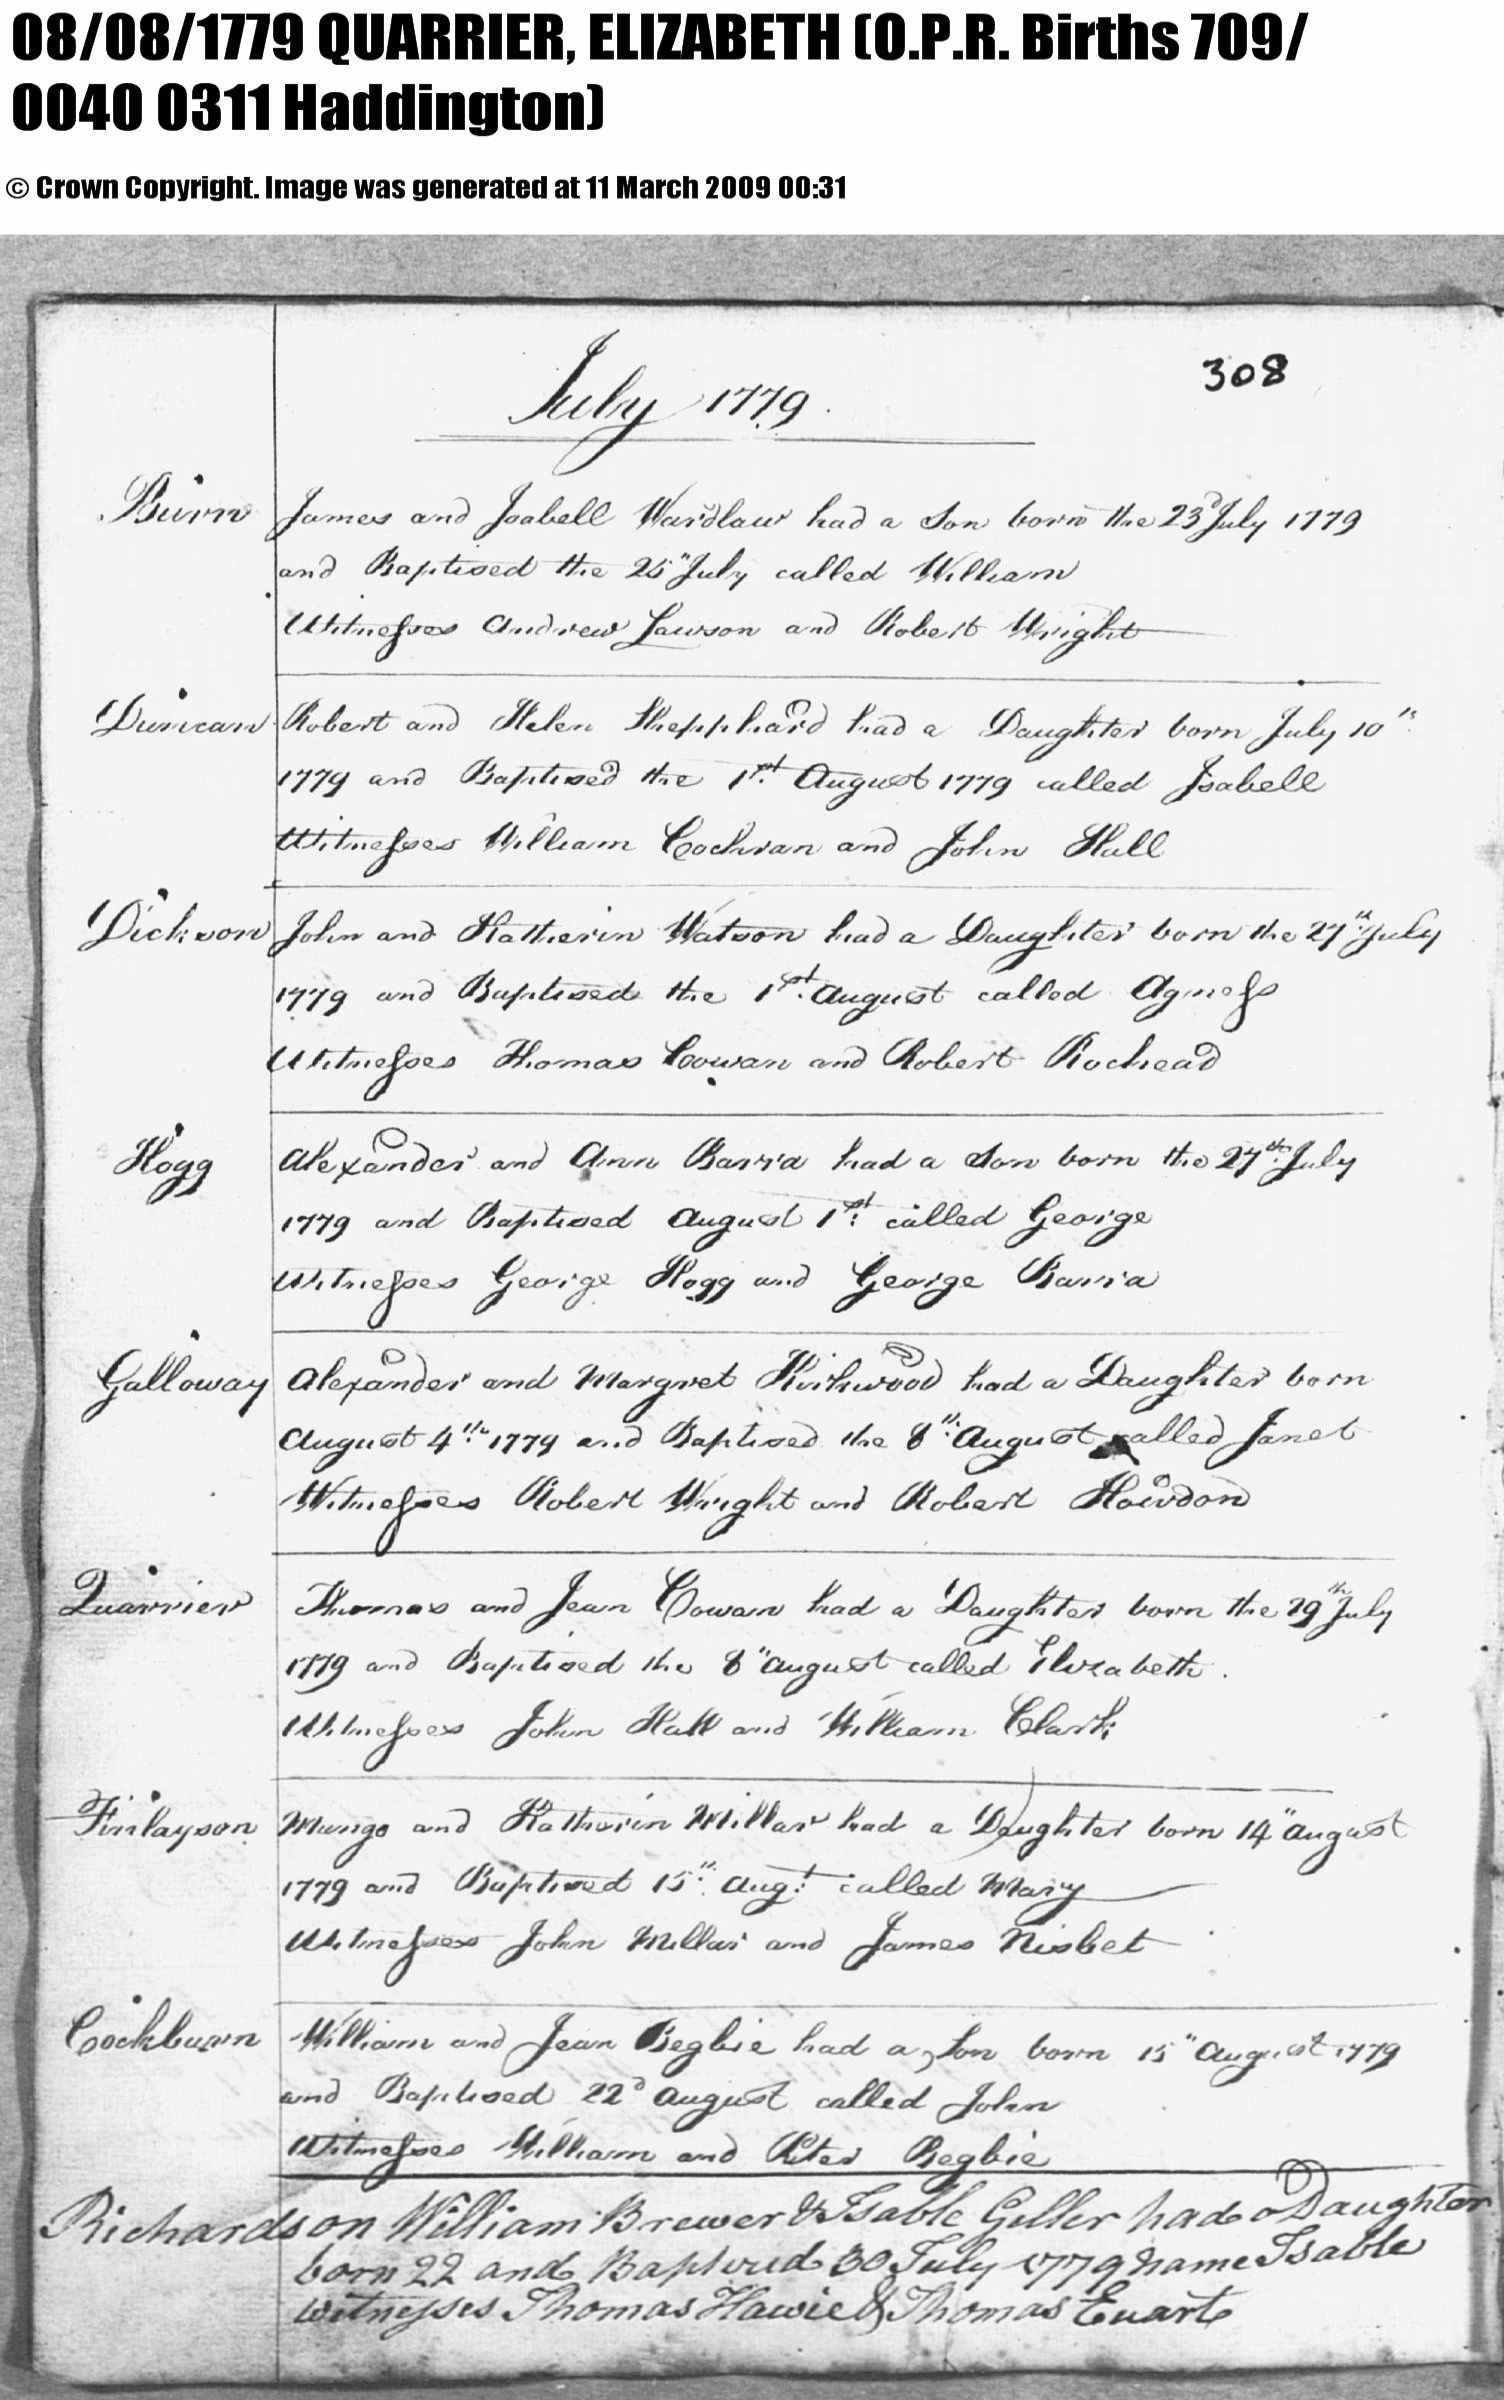 08/08/1779 QUARRIER, ELIZABETH (O.P.R. Births 709/
0040 0311 Haddington)
© Crown Copyright. Image was generated at 11 March 2009 00:31
308
July 1779
Burn James and Isabell Wardlaw had a Son born the 23d July 1779
and Baptised the 25" July called William
Witnesses Andrew Lawson and Robert Wright
Duncan Robert and Helen Shepphard had a Daughter born July 10"
1779 and Baptised the 1st August 1779 called Isabell
Witnesses William Cochran and John Hall
Dickson John and Katherin Watson had a Daughter born the 27th July
1779 and Baptised the 1st August called Agness
Witnesses Thomas Cowan and Robert Rochead
Hogg Alexander and Ann Barra had a Son born the 27th July
1779 and Baptised August 1st called George
Witnesses George Hogg and George Barra
Galloway Alexander and Margret Kirkwood had a Daughter born
August 4th 1779 and Baptised the 8th August called Janet
Witnesses Robert Wright and Robert Howdon
Quarrier Thomas and Jean Cowan had a Daughter born the 29th July
1779 and Baptised the 8" August called Elizabeth.
Witnesses John Hall and William Clark
Finlayson Mungo and Katherin Millar had a Daughter born 14" August
1779 and Baptised 15th Augt called Mary
Witnesses John Millar and James Nisbet
Cockburn William and Jean Begbie had a Son born 15" August 1779
and Baptised 22d August called John
Witnesses William and Peter Begbie
Richardson William Brewer & Isable Geller had a Daughter
born 22 and Baptised 30 July 1779 name Isable
witnesses Thomas Hawie & Thomas Euart